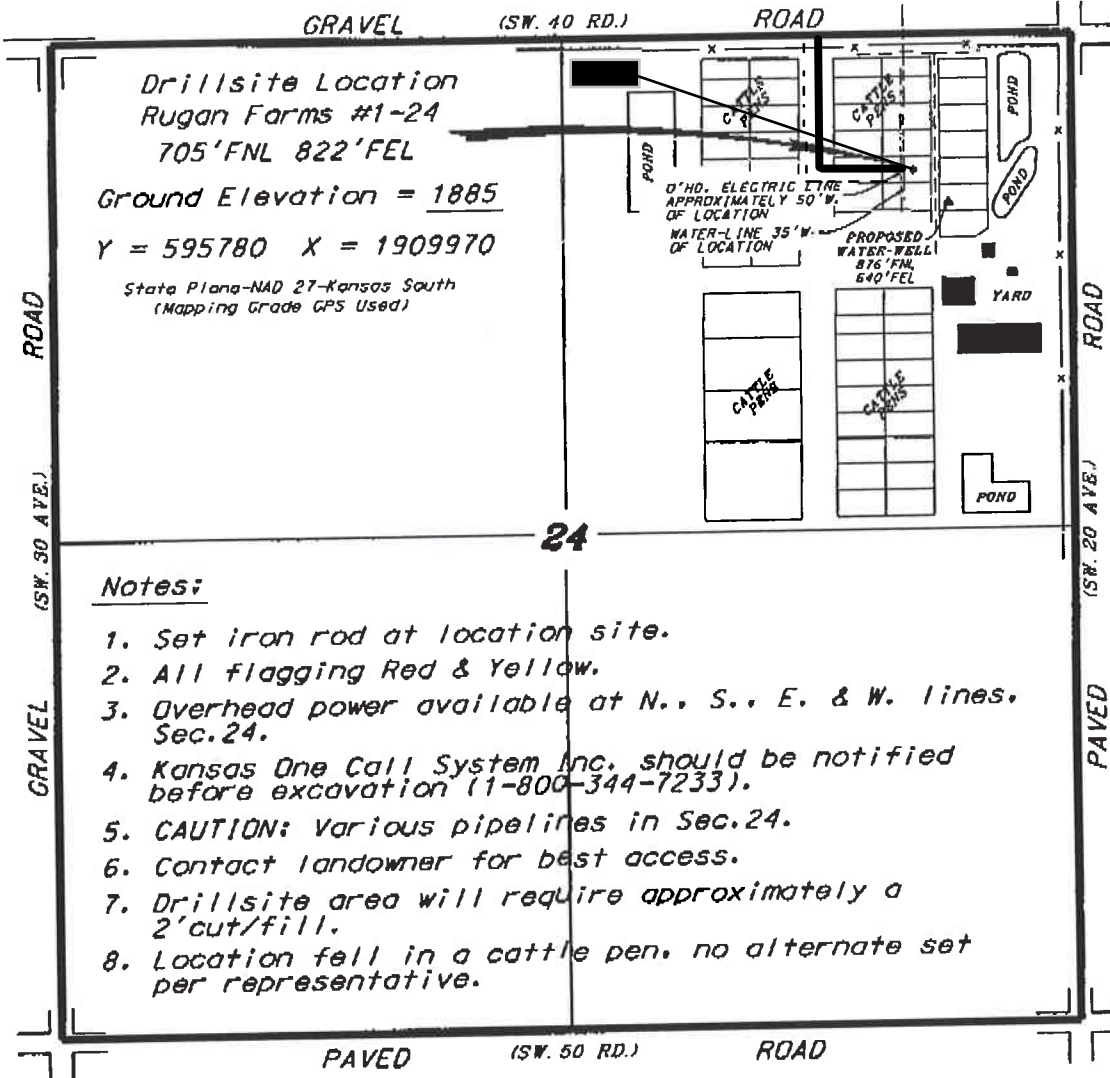 GRAVEL (SW. 40 RD.) ROAD
Drillsite Location
Rugan Farms #1-24
705'FNL 822'FEL
Ground Elevation = 1885
Y = 595780 X = 1909970
State Plane-NAD 27-Kansas South
(Mapping Grade GPS Used)
CATTLE
PENS
CATTLE
PENS
POND
POND
POND
O'HD. ELECTRIC LINE
APPROXIMATELY 50'W.
OF LOCATION
WATER-LINE 35'W.
OF LOCATION
PROPOSED
WATER-WELL
876'FNL
640'FEL
YARD
CATTLE
PENS
CATTLE
PENS
POND
ROAD
(SW. 30 AVE.)
GRAVEL
ROAD
(SW. 20 AVE.)
PAVED
24
Notes:
1. Set iron rod at location site.
2. All flagging Red & Yellow.
3. Overhead power available at N., S., E. & W. lines.
Sec.24.
4. Kansas One Call System Inc. should be notified
before excavation (1-800-344-7233).
5. CAUTION: Various pipelines in Sec.24.
6. Contact landowner for best access.
7. Drillsite area will require approximately a
2'cut/fill.
8. Location fell in a cattle pen, no alternate set
per representative.
PAVED (SW. 50 RD.) ROAD